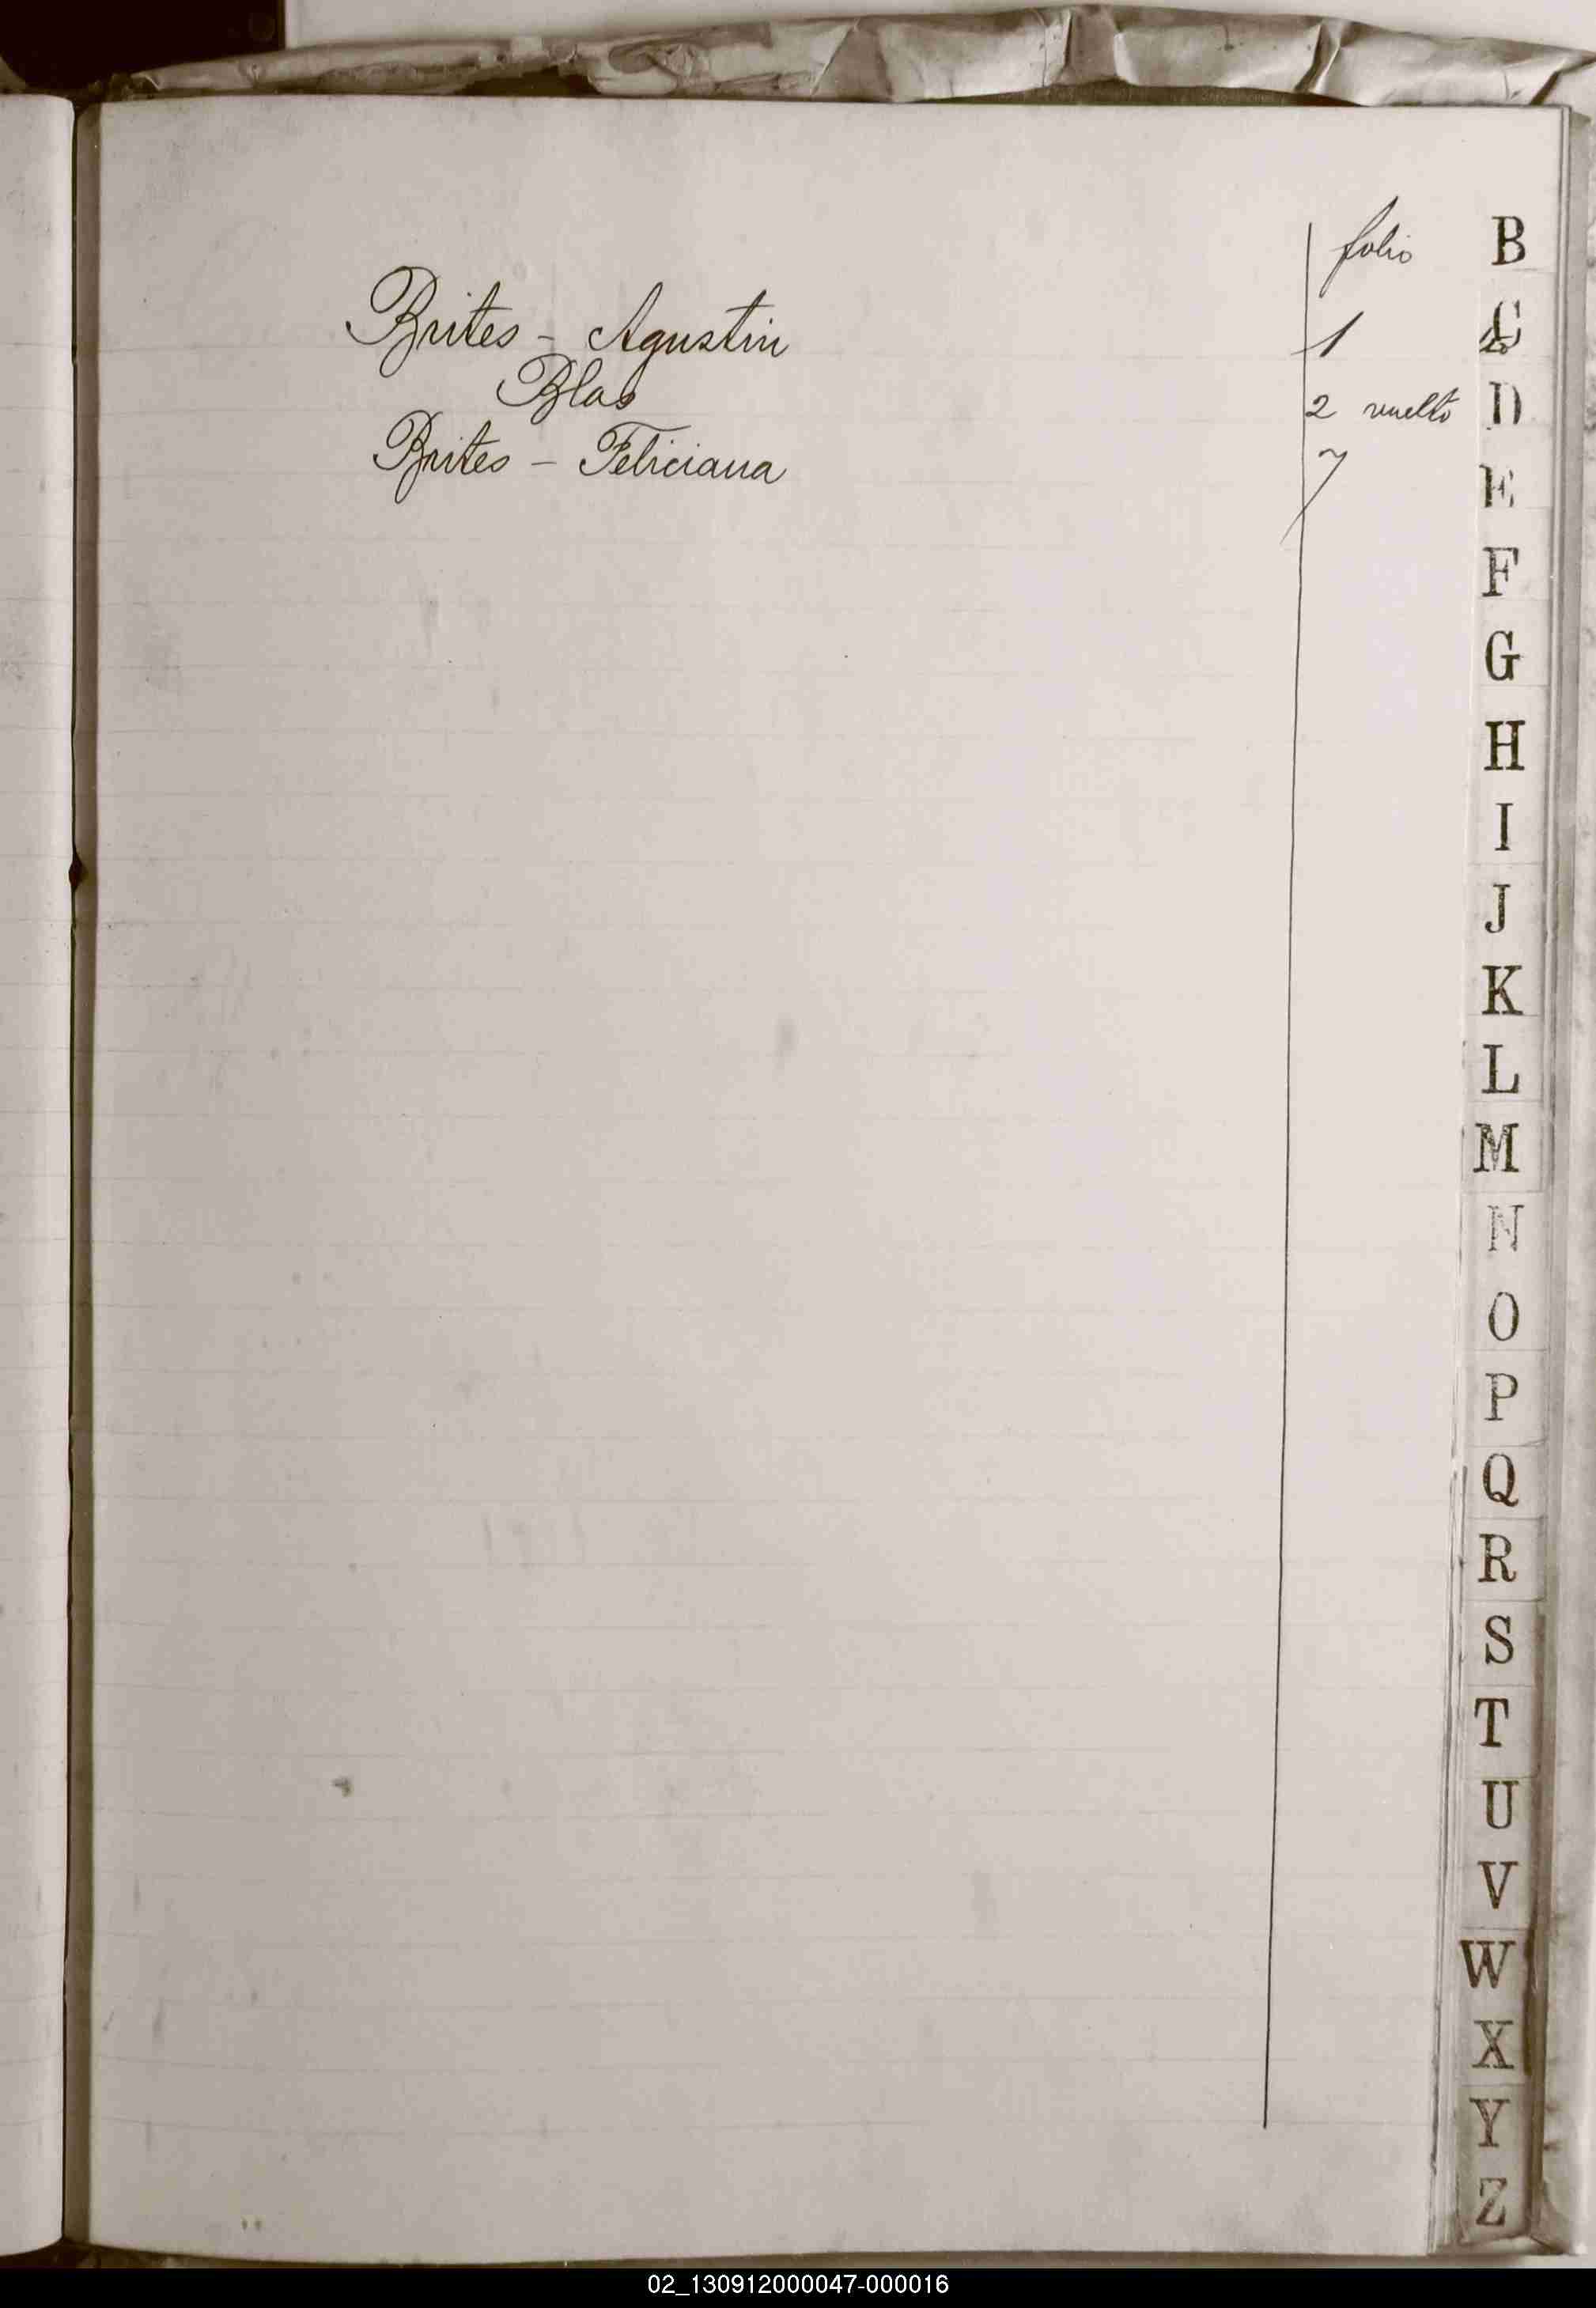 folio B
Brites - Agustin 1 C
Blas 2 vuelto D
Brites - Feliciana 7 E
F
G
H
I
J
K
L
M
N
O
P
Q
R
S
T
U
V
W
X
Y
Z
02_130912000047-000016